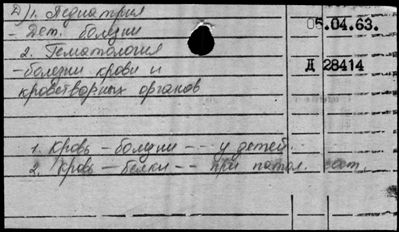 Д) 1. Педиатрия 05.04.63.
- Дет. болезни
2. Гематология
- болезни крови и Д 28414
кроветворных органов
1. Кровь - болезни - - у детей.
2. Кровь - белки - - при патол. сост.